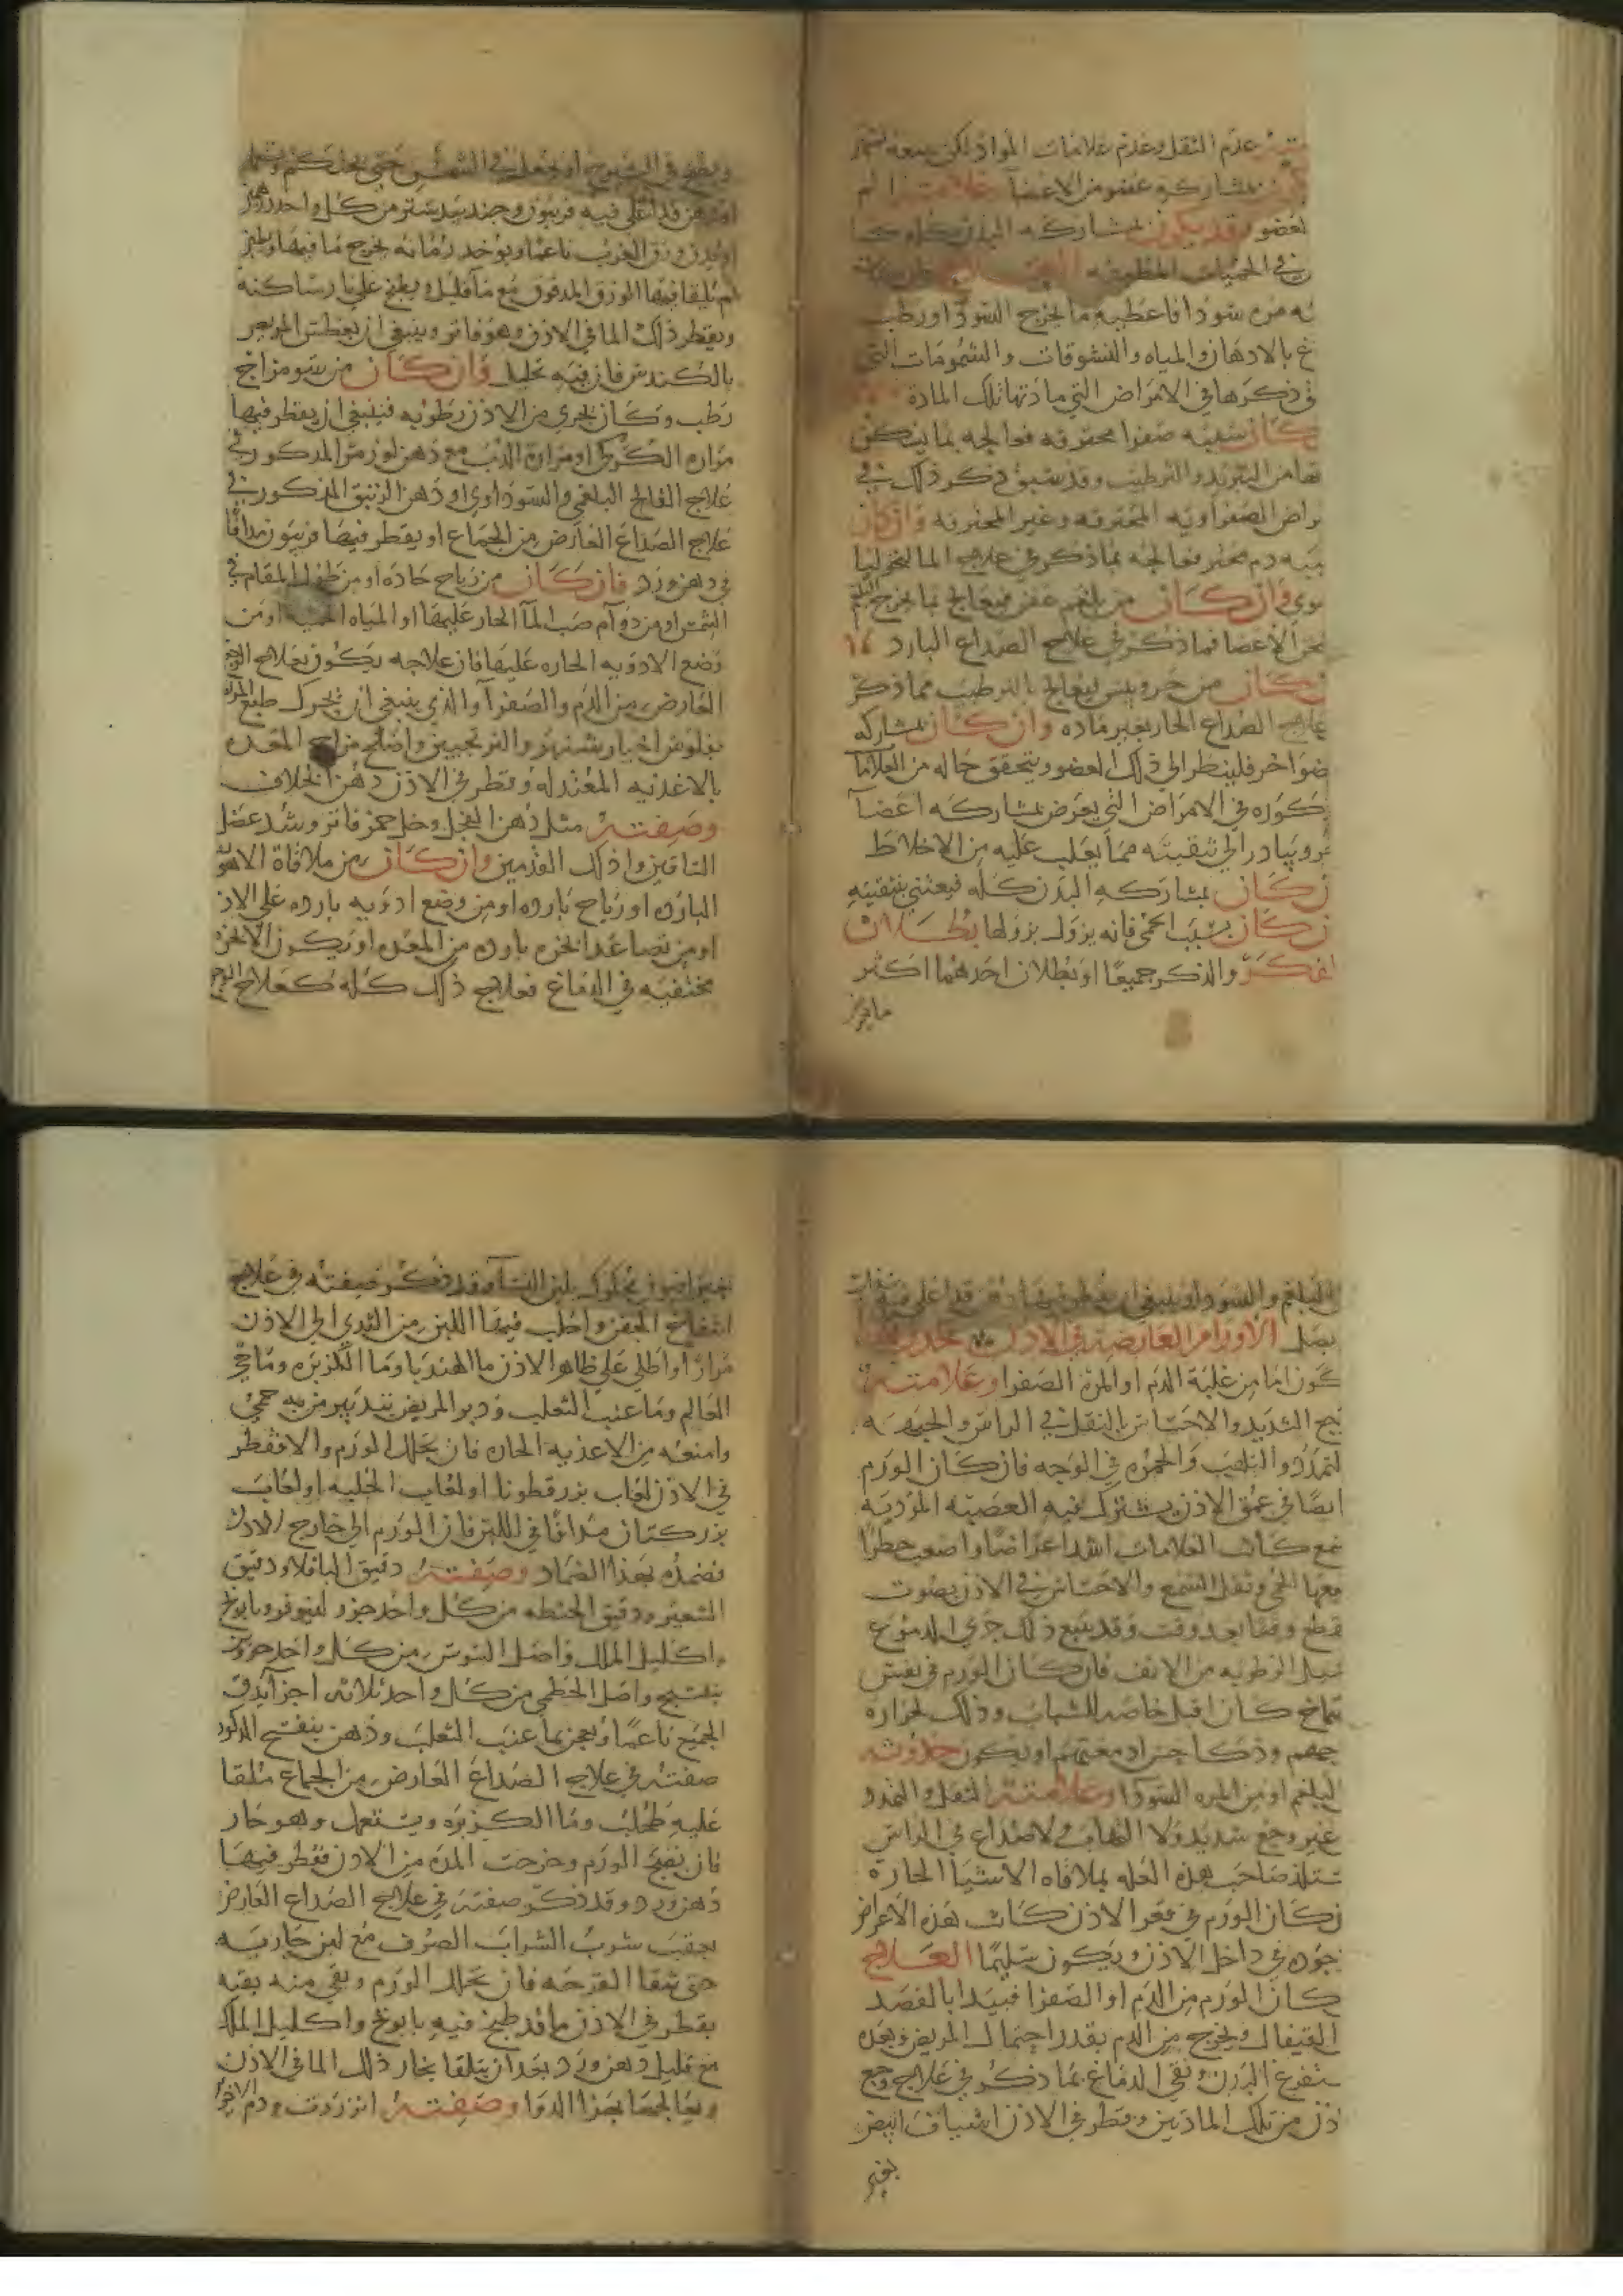 عدم الثقل وعدم علامات المواد لكن معه
بمشاركه عضو من الاعضآ علامته الم
لعضو وقد يكون بمشاركه البدن كله كما
في الحميات
ته مره سودا فاعطيه ما يخرج السودا ورطب
غ بالادهان والمياه والنشوقات والشمومات التي
في ذكرها في الامراض التي مادتها تلك المادة
كان سببه صفرا محترقه فعالجه بما يمكن
تها من التبريد والترطيب وقد سبق ذكر ذلك في
راض الصفراويه المحترقه وغير المحترقه وان كان
ببه دم محترق فعالجه بما ذكر في علاج المالنخوليا
موي وان كان من بلغم عفن فيعالج بما يخرج البلغم
خن الاعضا مما ذكر في علاج الصداع البارد
ن كان من حر ويبس ليعالج بالترطيب مما ذكر
علاج الصداع الحار بغير ماده وان كان بمشاركه
ضو اخر فلينظر الى ذلك العضو ويتحقق حاله من العلامآ
كوره في الامراض التي يعرض بمشاركه اعضآ
ر ويبادر الى تنقيته مما يغلب عليه من الاخلاط
ن كان بمشاركه البدن كله فيعتني بتنقيته
ن كان بسبب الحمى فانه يزول بزولها بطلان
لفكر والذكر جميعًا او بطلان احدهما اكثر
ويطبخ في او يجعل في الشمس حتى
او دهن قد اغلي فيه فربيون وجندبيدستر من كل واحد
او يدق ورق الغرب ناعمًا ويوخد رمانه يخرج ما فيها
ثم يلقا فيها الورق المدقوق مع ما قليل ويطبخ على نار ساكنه
ويقطر ذلك الما في الاذن وهو فاتر وينبغي ان يعطس المريض
بالكندس فان فيه تحليل وان كان من سو مزاج
رطب وكان يجري من الاذن رطوبه فينبغي ان يقطر فيها
مراره الكركي او مراره الدب مع دهن لوز مر المدكور في
علاج الفالج البلغمي والسوداوي او دهن الزنبق المذكور في
علاج الصداع العارض من الجماع او يقطر فيها فربيون مدافًا
في دهن ورد فان كان من رياح حاده او من طول المقام في
الشمس او من دوآم صب المآ الحار عليها او المياه او من
وضع الادويه الحاره عليها فان علاجه يكون بعلاج الوجع
العارض من الدم والصفرآ والذي ينبغي ان يحرك طبع المريض
بفلوس الخيار شنبر والترنجبين واصلح مزاج المعده
بالاغذيه المعتدله وقطر في الاذن دهن الخلاف
وصفته مثل دهن الفجل وخل خمر فاتر وشد عضل
الساقين وادلك القدمين وان كان من ملاقاة الاهويه
البارده او رياح بارده او من وضع ادويه بارده على الاذن
او من تصاعد ابخره بارده من المعده او يكون الابخره
مختقنه في الدماغ فعلاج ذلك كله كعلاج الوجع
البلغم والسودا وينبغي ان يقطر فيها دهن قد اغلي فيه
بصل الاورام العارضه في الاذن حدوثها
كون اما من غلبة الدم او المرة الصفرا وعلامته
جع الشديد والاحتباس بالثقل في الراس والجبهه
لتمدد والتلهب والحمره في الوجه فان كان الورم
ايضًا في عمق الاذن يشترك فيه العصبه المؤديه
سمع كانت العلامات اشد اعراضًا واصعب خطرًا
معها الحمى وثقل السمع والاحساس في الاذن بصوت
قطع وقتا بعد وقت وقد يتبع ذلك جري الدموع
سيل الرطوبه من الانف فان كان الورم في نفس
صماخ كان اقبل خاصه للشباب وذلك لحراره
او يكون حدوثه
البلغم او من المره السودا وعلامته الثقل والتمدد
غير وجع شديد ولا التهاب ولا صداع في الراس
يستلذ صاحب هذه العله بملاقاه الاشيآ الحاره
ن كان الورم في قعر الاذن كانت هذه الاعراض
جوده في داخل الاذن ويكون سليمًا العلاج
كان الورم من الدم او الصفرا فيبدا بالفصد
القيفال ويخرج من الدم بقدر احتمال المريض وبعده
ستفرغ البدن ونقي الدماغ بما ذكر في علاج وجع
اذن من تلك المادتين وقطر في الاذن اشياف ابيض
بغير افيون محكوك بلبن النسآ وقد ذكر صفته في علاج
الجفن واحلب فيها اللبن من الثدي الى الاذن
مرارًا واطلي على ظاهر الاذن ما الهندبا وما الكزبره وما حي
العالم وما عنب الثعلب ودبر المريض بتدبير من به حمى
وامنعه من الاغذيه الحاره فان تحلل الورم والا فقطر
في الاذن لعاب بزر قطونا او لعاب الحلبه او لعاب
بزر كتان مدافًا في اللبن فان الورم الى خارج الاذن
فضمده بهذا الضماد وصفته دقيق الباقلا ودقيق
الشعير ودقيق الحنطه من كل واحد جزو لينوفر وبابونج
واكليل الملك واصل السوس من كل واحد جزوين
بنفسج واصل الخطمى من كل واحد ثلاثه اجزآ يدق
الجميع ناعمًا ويعجن بما عنب الثعلب ودهن بنفسج المذكور
صفته في علاج الصداع العارض من الجماع ملقا
عليه طحلب وما الكزبره ويستعمل وهو حار
فان نضج الورم وخرجت المده من الاذن فقطر فيها
دهن ورد وقد ذكر صفته في علاج الصداع العارض
بعقب شرب الشراب الصرف مع لبن جاريه
حتى تنقا القرحه فان تحلل الورم وبقي منه بقيه
يقطر في الاذن ما قد طبخ فيه بابونج واكليل الملك
مع قليل دهن ورد بعد ان يتلقا بخار ذلك الما في الاذن
بهذا الدوا وصفته انزروت ودم الاخوين